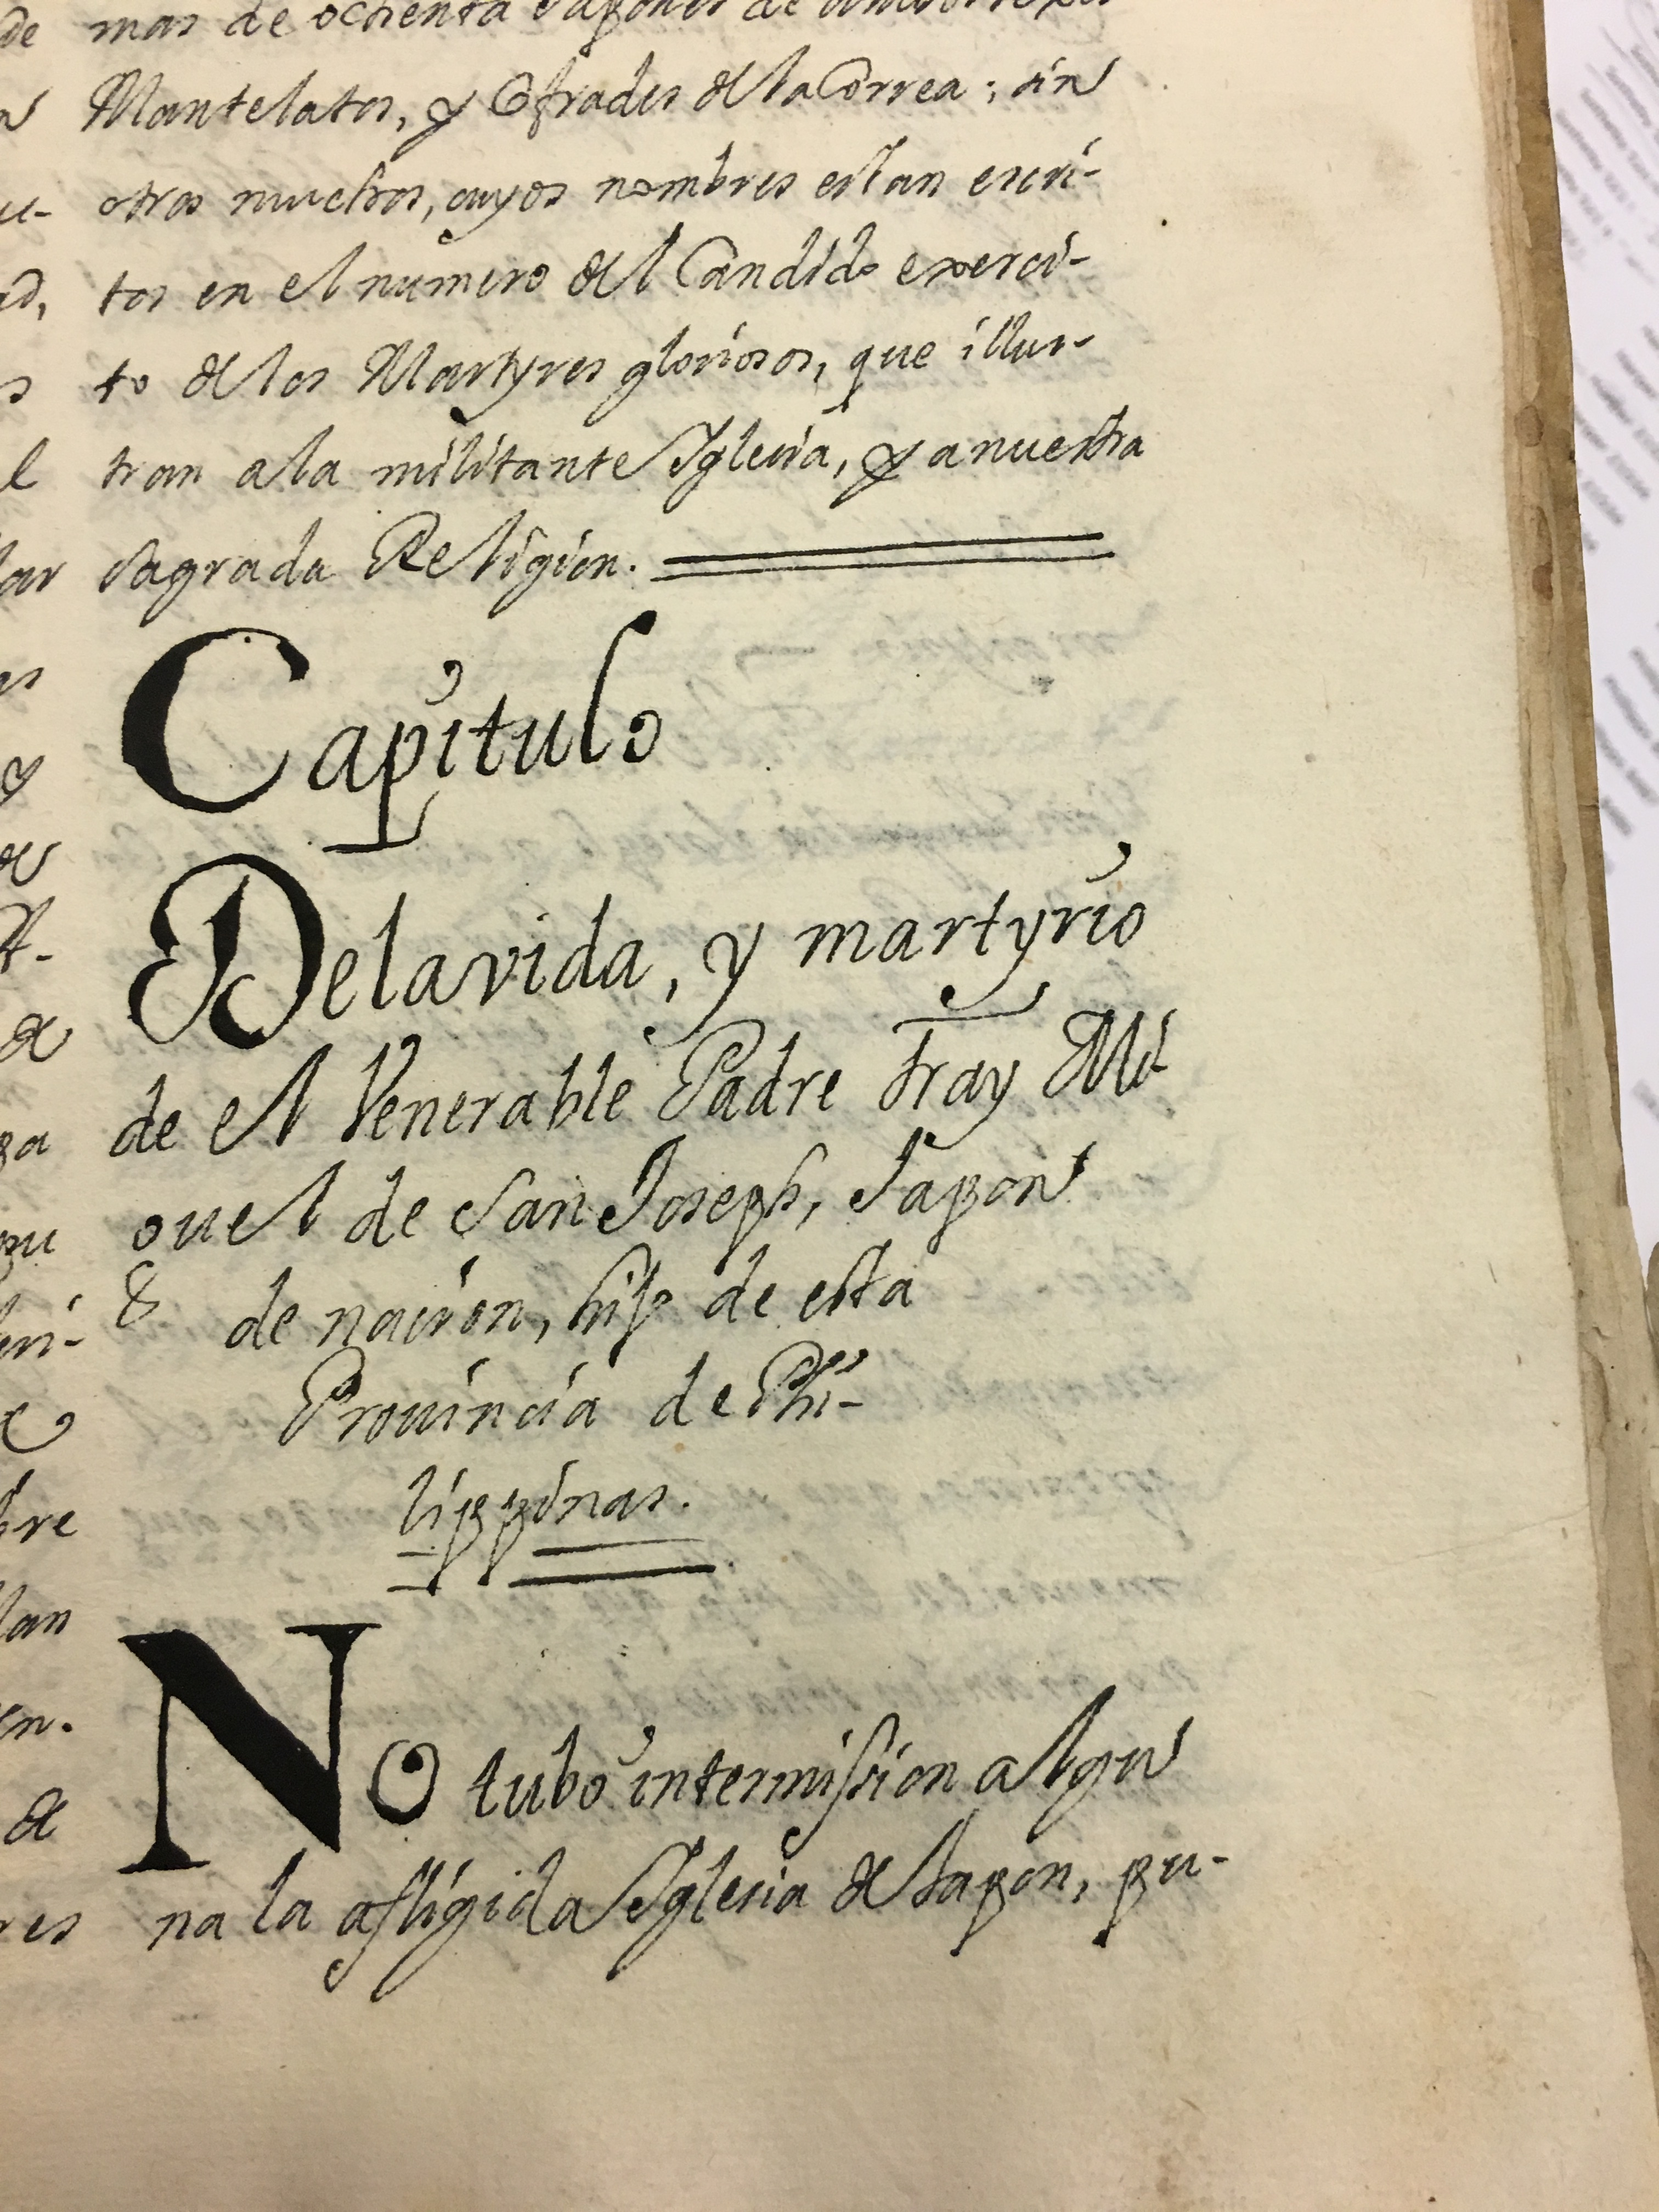 de mas de ochenta Japones de ambos sexos
Mantelatos, y Cofrades de la Correa; sin
otros muchos, cuyos nombres estan escri-
tos en el numero del Candido exerci-
to de los Martyres gloriosos, que illus-
tran a la militante Iglesia, y a nuestra
Sagrada Religion.
Capitulo
De la vida, y martyrio
de el Venerable Padre fray Mi-
guel de San Joseph, Japon
de nacion, hijo de esta
Provincia de Phi-
lippinas.
No tubo intermission algu
na la afligida Iglesia de Japon, pu-